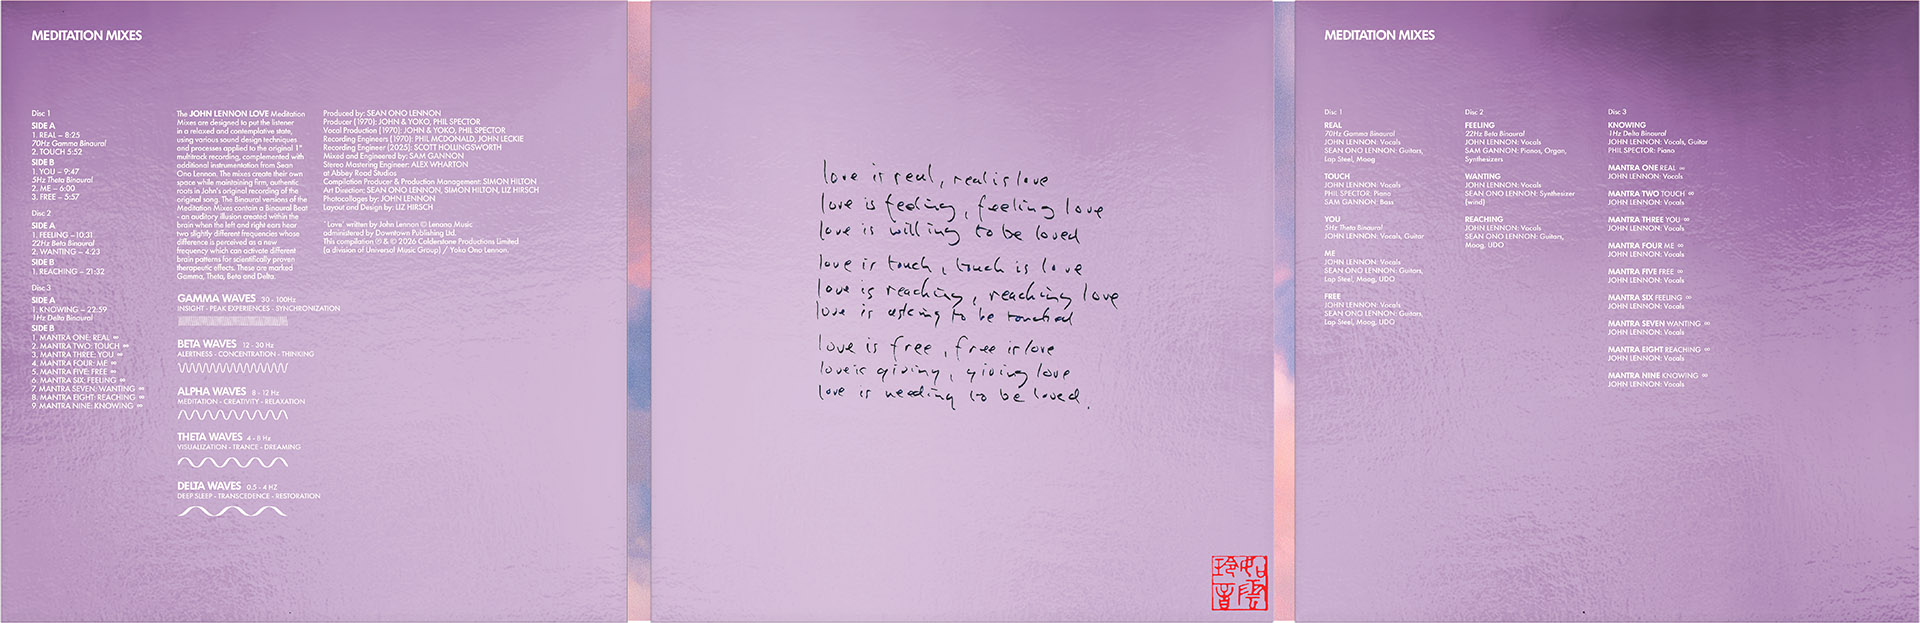 MEDITATION MIXES
Disc 1
SIDE A
1. REAL – 8:25
70Hz Gamma Binaural
2. TOUCH 5:52
SIDE B
1. YOU – 9:47
5Hz Theta Binaural
2. ME – 6:00
3. FREE – 5:57
Disc 2
SIDE A
1. FEELING –10:31
22Hz Beta Binaural
2. WANTING – 4:23
SIDE B
1. REACHING – 21:32
Disc 3
SIDE A
1. KNOWING – 22:59
1Hz Delta Binaural
SIDE B
1. MANTRA ONE: REAL ∞
2. MANTRA TWO: TOUCH ∞
3. MANTRA THREE: YOU ∞
4. MANTRA FOUR: ME ∞
5. MANTRA FIVE: FREE ∞
6. MANTRA SIX: FEELING ∞
7. MANTRA SEVEN: WANTING ∞
8. MANTRA EIGHT: REACHING ∞
9. MANTRA NINE: KNOWING ∞
The JOHN LENNON LOVE Meditation
Mixes are designed to put the listener
in a relaxed and contemplative state,
using various sound design techniques
and processes applied to the original 1"
multitrack recording, complemented with
additional instrumentation from Sean
Ono Lennon. The mixes create their own
space while maintaining firm, authentic
roots in John's original recording of the
original song. The Binaural versions of the
Meditation Mixes contain a Binaural Beat
- an auditory illusion created within the
brain when the left and right ears hear
two slightly different frequencies whose
difference is perceived as a new
frequency which can activate different
brain patterns for scientifically proven
therapeutic effects. These are marked
Gamma, Theta, Beta and Delta.
GAMMA WAVES 30 - 100Hz
INSIGHT - PEAK EXPERIENCES - SYNCHRONIZATION
BETA WAVES 12 - 30 Hz
ALERTNESS - CONCENTRATION - THINKING
ALPHA WAVES 8 - 12 Hz
MEDITATION - CREATIVITY - RELAXATION
THETA WAVES 4 - 8 Hz
VISUALIZATION - TRANCE - DREAMING
DELTA WAVES 0.5 - 4 HZ
DEEP SLEEP - TRANSCEDENCE - RESTORATION
Produced by: SEAN ONO LENNON
Producer (1970): JOHN & YOKO, PHIL SPECTOR
Vocal Production (1970): JOHN & YOKO, PHIL SPECTOR
Recording Engineers (1970): PHIL MCDONALD, JOHN LECKIE
Recording Engineer (2025): SCOTT HOLLINGSWORTH
Mixed and Engineered by: SAM GANNON
Stereo Mastering Engineer: ALEX WHARTON
at Abbey Road Studios
Compilation Producer & Production Management: SIMON HILTON
Art Direction: SEAN ONO LENNON, SIMON HILTON, LIZ HIRSCH
Photocollages by: JOHN LENNON
Layout and Design by: LIZ HIRSCH
'Love' written by John Lennon © Lenono Music
administered by Downtown Publishing Ltd.
This compilation ℗ & © 2026 Calderstone Productions Limited
(a division of Universal Music Group) / Yoko Ono Lennon.
love is real, real is love
love is feeling, feeling love
love is willing to be loved
love is touch, touch is love
love is reaching, reaching love
love is asking to be touched
love is free, free is love
love is giving, giving love
love is needing to be loved.
玲如
音雲
MEDITATION MIXES
Disc 1
REAL
70Hz Gamma Binaural
JOHN LENNON: Vocals
SEAN ONO LENNON: Guitars,
Lap Steel, Moog
TOUCH
JOHN LENNON: Vocals
PHIL SPECTOR: Piano
SAM GANNON: Bass
YOU
5Hz Theta Binaural
JOHN LENNON: Vocals, Guitar
ME
JOHN LENNON: Vocals
SEAN ONO LENNON: Guitars,
Lap Steel, Moog, UDO
FREE
JOHN LENNON: Vocals
SEAN ONO LENNON: Guitars,
Lap Steel, Moog, UDO
Disc 2
FEELING
22Hz Beta Binaural
JOHN LENNON: Vocals
SAM GANNON: Pianos, Organ,
Synthesizers
WANTING
JOHN LENNON: Vocals
SEAN ONO LENNON: Synthesizer
(wind)
REACHING
JOHN LENNON: Vocals
SEAN ONO LENNON: Guitars,
Moog, UDO
Disc 3
KNOWING
1Hz Delta Binaural
JOHN LENNON: Vocals, Guitar
PHIL SPECTOR: Piano
MANTRA ONE REAL ∞
JOHN LENNON: Vocals
MANTRA TWO TOUCH ∞
JOHN LENNON: Vocals
MANTRA THREE YOU ∞
JOHN LENNON: Vocals
MANTRA FOUR ME ∞
JOHN LENNON: Vocals
MANTRA FIVE FREE ∞
JOHN LENNON: Vocals
MANTRA SIX FEELING ∞
JOHN LENNON: Vocals
MANTRA SEVEN WANTING ∞
JOHN LENNON: Vocals
MANTRA EIGHT REACHING ∞
JOHN LENNON: Vocals
MANTRA NINE KNOWING ∞
JOHN LENNON: Vocals